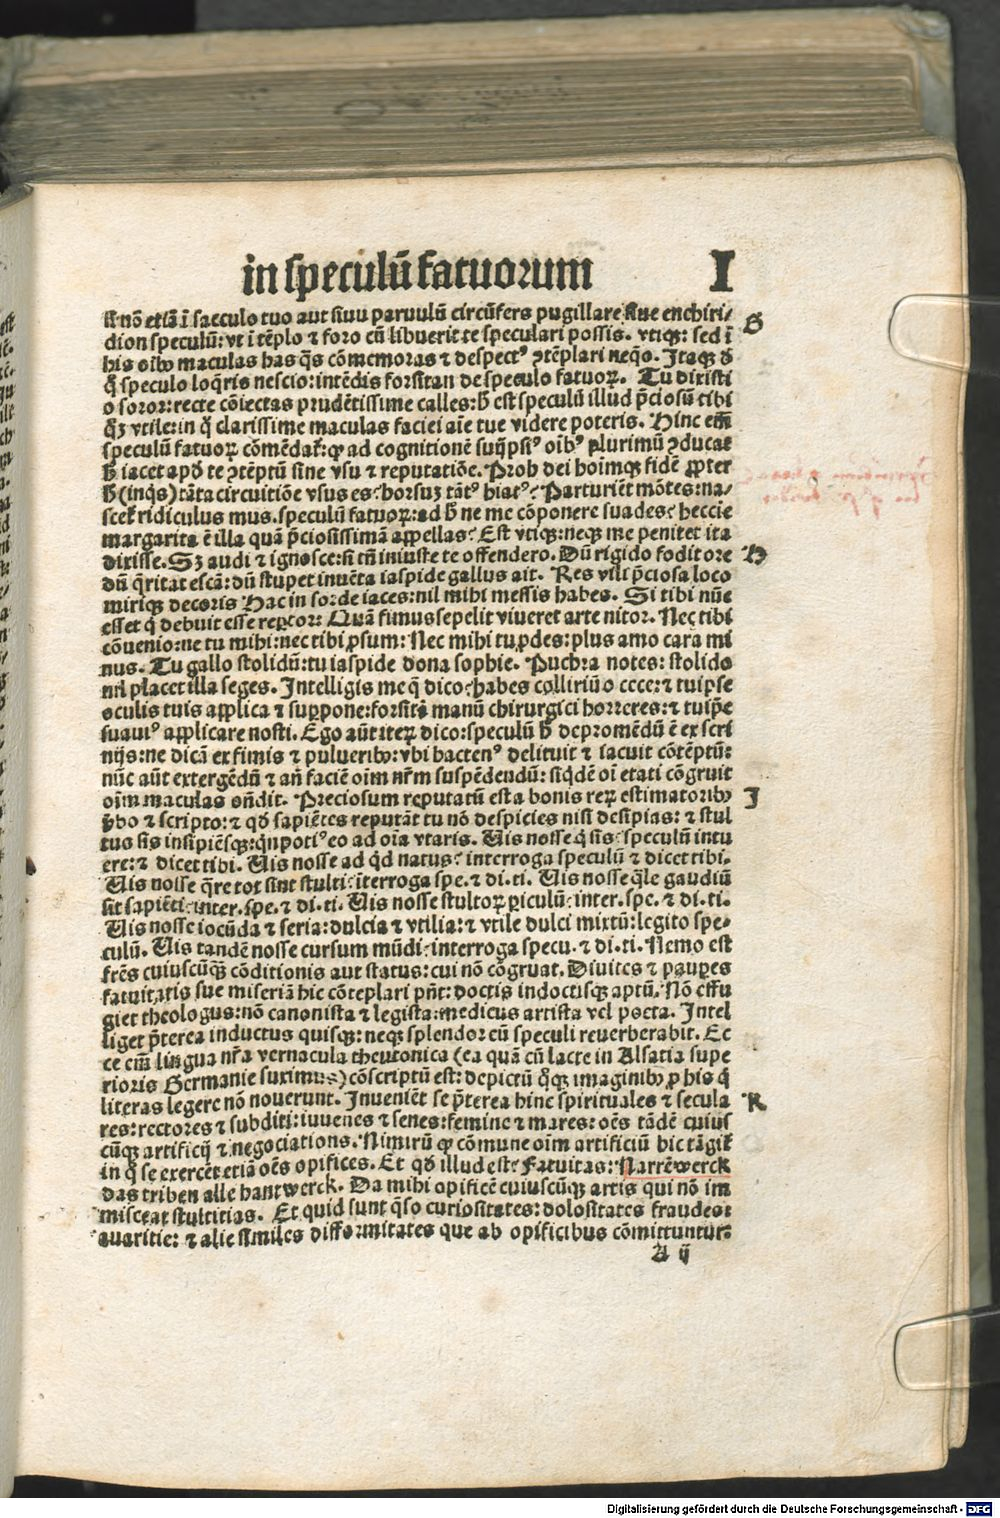 in speculū fatuorum I
nō etiā ī saeculo tuo aut sinu paruulū circūfers pugillare siue enchiri/ G
dion speculū: vt ī tēplo ⁊ foro cū libuerit te speculari possis. vtiqꝫ: sed ī
his oībꝰ maculas has q̄s cōmemoras ⁊ despectꝰ ꝯtēplari neqo. Itaqꝫ d̄
q̊ speculo loq̄ris nescio: intēdis forsitan de speculo fatuoꝝ. Tu dixisti
o soror: recte cōiectas prudētissime calles: h̄ est speculū illud p̄ciosū tibi
qꝫ vtile: in q̊ clarissime maculas faciei aīe tue videre poteris. Hinc em̄
speculū fatuoꝝ cōmēdat̄: qꝙ ad cognitionē suijpsiꝰ oībꝰ plurimū ꝯducat
h̄ iacet apd̄ te ꝯtēptū sine vsu ⁊ reputatiōe. Proh dei hoīmqꝫ fidē ꝓpter
h̄ (inq̄s) tāta circuitiōe vsus es? horsuꝫ tātꝰ hiatꝰ? Parturiēt mōtes: na/
scet̄ ridiculus mus. speculū fatuoꝝ: ad h̄ ne me cōponere suades? heccie
margarita ē illa quā p̄ciosissimā appellas? Est vtiqꝫ: neqꝫ me penitet ita
dixisse. Sꝫ audi ⁊ ignosce: si tn̄ iniuste te offendero. Dū rigido fodit ore H
dū q̄ritat escā: dū stupet inuēta iaspide gallus ait. Res vili p̄ciosa loco
miriqꝫ decoris Hac in sorde iaces: nil mihi messis habes. Si tibi nūc
esset q̄ debuit esse reꝑtor: Quā fimus sepelit viueret arte nitor. Nec tibi
cōuenio: ne tu mihi: nec tibi ꝓsum: Nec mihi tu ꝓdes: plus amo cara mi
nus. Tu gallo stolidū: tu iaspide dona sophie. Puchra notes: stolido
nil placet illa seges. Intelligis me q̄ dico? habes colliriū o cece: ⁊ tuipse
oculis tuis applica ⁊ suppone: forsitā manū chirurgici horreres: ⁊ tuip̄e
suauiꝰ applicare nosti. Ego aūt iteꝝ dico: speculū h̄ depromēdū ē ex scri
nijs: ne dicā ex fimis ⁊ pulueribꝰ: vbi hactenꝰ delituit ⁊ iacuit cōtēptū:
nūc aūt extergēdū ⁊ añ faciē oīm nr̄m suspēdendū: siq̄dē oī etati cōgruit
oīm maculas oñdit. Preciosum reputatū est a bonis reꝝ estimatoribꝰ I
v̄bo ⁊ scripto: ⁊ qd̄ sapiētes reputāt tu nō despicies nisi desipias: ⁊ stul
tus sis insipiēsqꝫ: q̄npotiꝰ eo ad oīa vtaris. Uis nosse q̄ sis? speculū intu
ere: ⁊ dicet tibi. Uis nosse ad qd̄ natus? interroga speculū ⁊ dicet tibi.
Uis nosse q̄re tot sint stulti? īterroga spe. ⁊ di. ti. Uis nosse q̄le gaudiū
sit sapiēti? inter. spe. ⁊ di. ti. Uis nosse stultoꝝ ꝑiculū? inter. spe. ⁊ di. ti.
Uis nosse iocūda ⁊ seria: dulcia ⁊ vtilia: ⁊ vtile dulci mixtū: legito spe-
culū. Uis tandē nosse cursum mūdi? interroga specu. ⁊ di. ti. Nemo est
fr̄es cuiuscūqꝫ cōditionis aut status: cui nō cōgruat. Diuites ⁊ pauꝑes
fatuitatis sue miseriā hic cōteplari pn̄t: doctis indoctisqꝫ aptū. Nō effu
giet theologus: nō canonista ⁊ legista: medicus artista vel poeta. Intel
liget p̄terea inductus quisqꝫ: neqꝫ splendor cū speculi reuerberabit. Ec
ce em̄ lingua nr̄a vernacula theutonica (ea quā cū lacte in Alsatia supe
rioris Germanie suximus) cōscriptū est: depictū q̊qꝫ imaginibꝰ ꝓ his q̄
literas legere nō nouerunt. Inueniēt se p̄terea hinc spirituales ⁊ secula K
res: rectores ⁊ subditi: iuuenes ⁊ senes: femine ⁊ mares: oēs tādē cuius
cūqꝫ artificij ⁊ negociationis. Nimirū qꝙ cōmune oīm artificiū hic tāgit̄
in q̊ se exercēt etiā oēs opifices. Et qd̄ illud est? Fatuitas: Narrēwerck
das triben alle hantwerck. Da mihi opificē cuiuscūqꝫ artis qui nō im
misceat stultitias. Et quid sunt q̄so curiositates: dolositates fraudes:
auaritie: ⁊ alie similes difformitates que ab opificibus cōmittuntur:
A ij
Digitalisierung gefördert durch die Deutsche Forschungsgemeinschaft - DFG